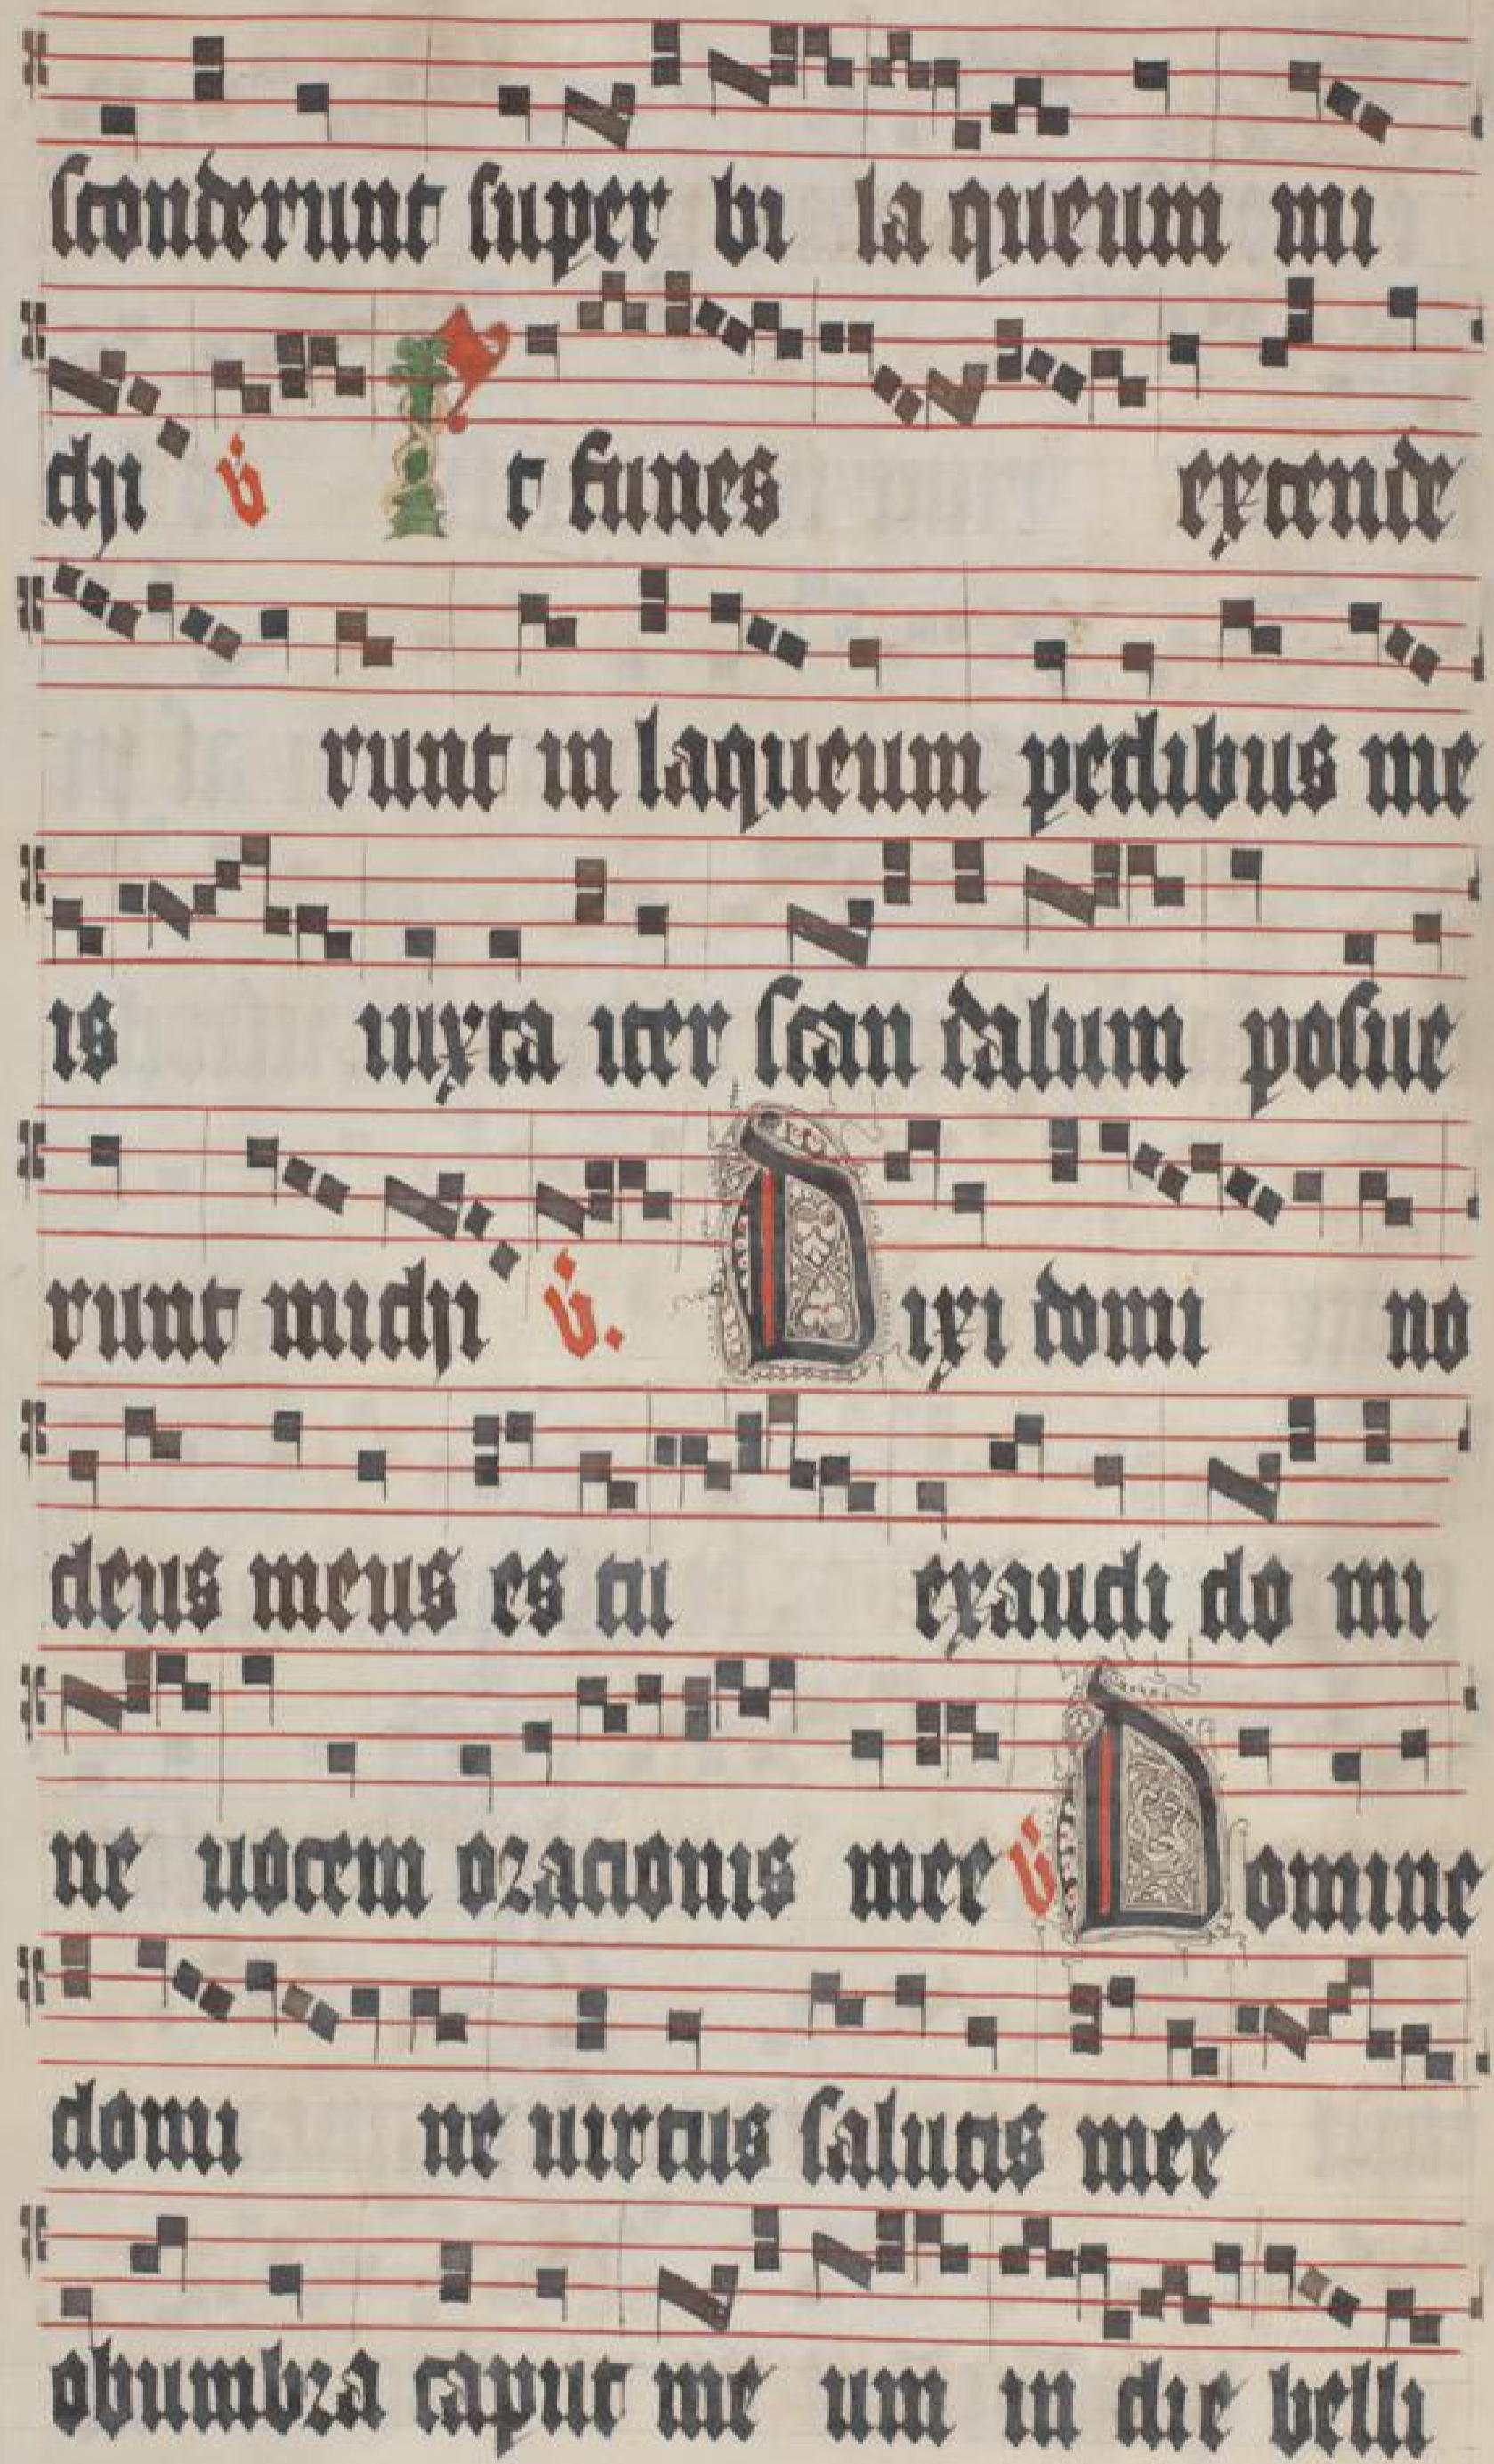 sconderunt super bi la queum mi
chi v Et funes extende
runt in laqueum pedibus me
is iuxta iter scan dalum posue
runt michi v. Dixi domi no
deus meus es tu exaudi do mi
ne uocem orationis mee v Domine
domi ne uirtus salutis mee
obumbra caput me um in die belli